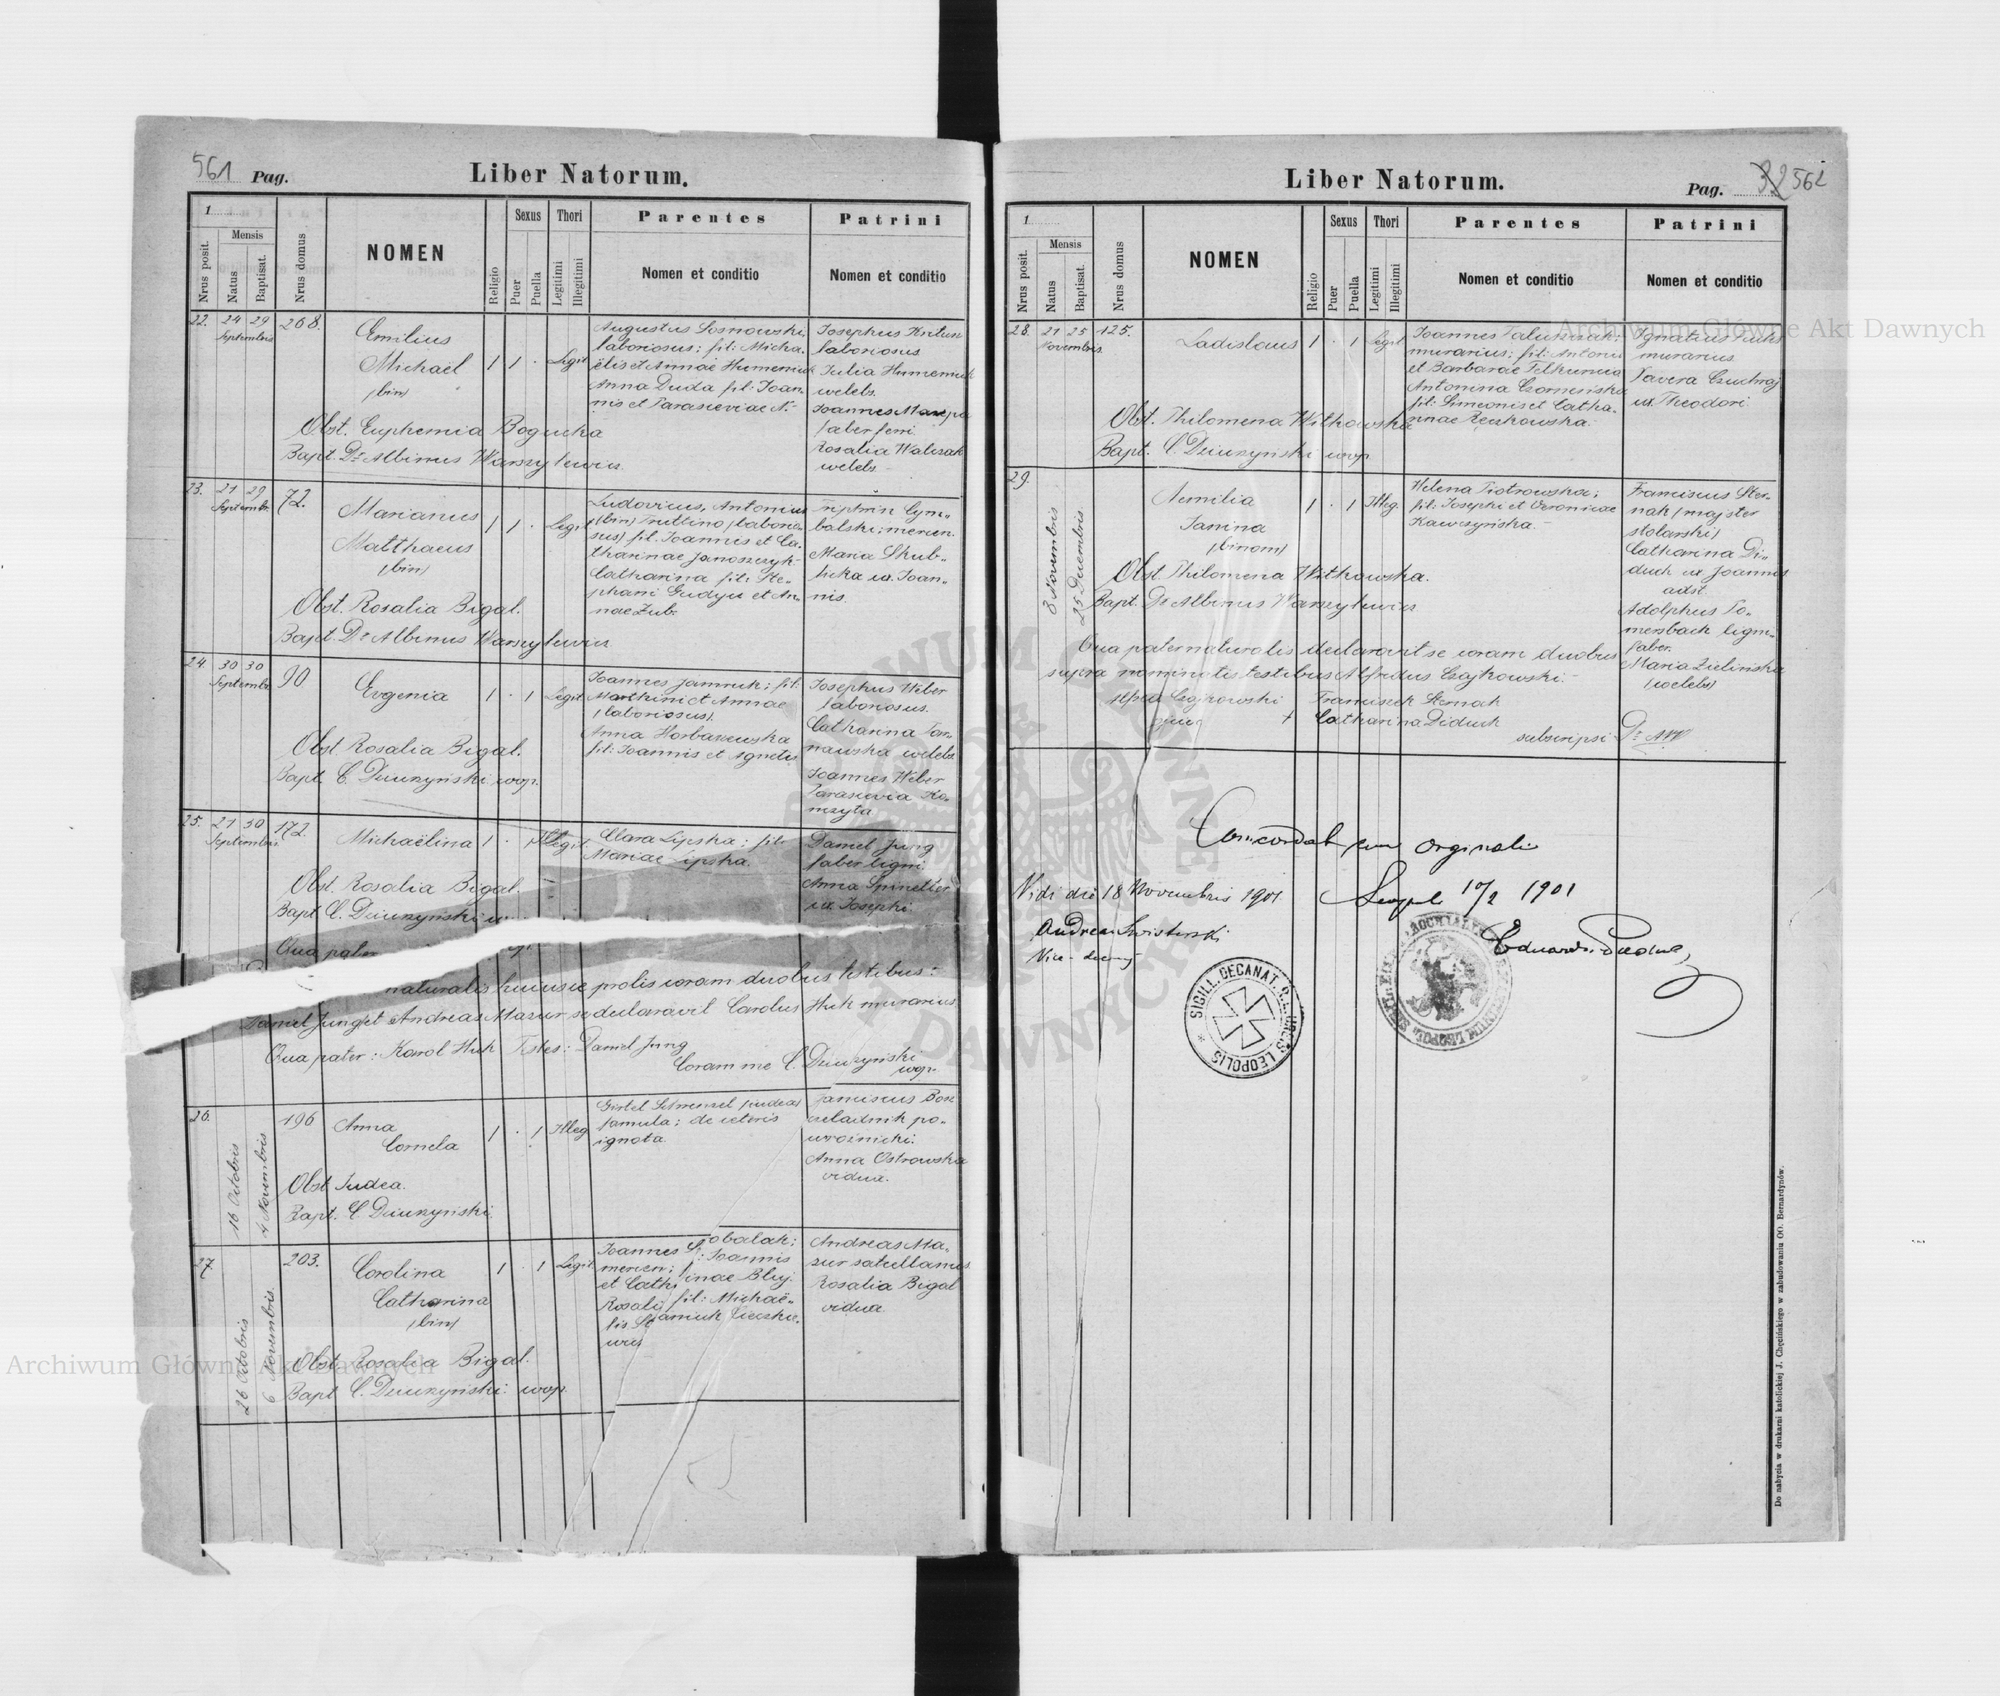 561 Pag.
Liber Natorum.
1
Nrus posit.
Mensis
Natus
Baptisat.
Nrus domus
NOMEN
Religio
Sexus
Puer
Puella
Thori
Legitimi
Illegitimi
Parentes
Nomen et conditio
Patrini
Nomen et conditio
22. 24 29 268.
Septembris
Emilius
Michaël
(bin)
1 1 . Legit
Augustus Sosnowski,
laboriosus; fil: Micha-
ëlis et Annae Humeniuk
Anna Duda fil: Joan-
nis et Parasceviae N.-
Josephus
laboriosus
Julia Humeniuk
coelebs.
Joannes Mazepa
faber ferri.
Rosalia Walczak
coelebs -
Obst. Euphemia Bogucka
Bapt. Dr Albinus Warszylewicz
23. 21 29 72.
Septembr.
Marianus
Matthaeus
(bin)
1 1 . Legit
Ludovicus, Antonius
(bin) Truttino (laborio-
sus) fil: Joannis et Ca-
tharinae Janoszczyk-
Catharina fil: Ste-
phani Gudyn et An-
nae Zub.
Cym-
balski; mercen.
Maria Skub-
licka ux. Joan-
nis.
Obst. Rosalia Bigal.
Bapt. Dr Albinus Warszylewicz
24. 30 30 90
Septembr
Eugenia
1 . 1 Legit
Joannes Jamruk; fil:
Marthini et Annae
(laboriosus).
Anna Horbaczewska
fil: Joannis et Agnetis
Josephus Weber
laboriosus.
Catharina Tar-
nawska coelebs
Joannes Weber
Parascevia Ko-
mzyta
Obst. Rosalia Bigal.
Bapt. C. Dziurzyński coop.
25. 21 30 172.
Septembris
Michaëlina 1 . 1 Illegit.
Clara Lipska; fil:
Mariae Lipska.
Daniel Jung
faber ligni
Anna Spinetter
ux. Josephi
Obst. Rosalia Bigal.
Bapt. C. Dziurzyński
Qua pater
naturalis huiusce prolis coram duobus testibus:
Daniel Jung et Andreas Mazur se declaravit Carolus Huk murarius
Qua pater: Karol Huk Testes: Daniel Jung
Coram me C. Dziurzyński
coop.
26. 196
16 Octobris
4 Novembris
Anna
Cornela
1 . 1 Illeg
Gistel Schmenzel (judea)
famula; de ceteris
ignota.
czeladnik po-
wroźnicki.
Anna Ostrowska
vidua.
Obst. Judea.
Bapt. C. Dziurzyński.
27. 203.
26 Octobris
6 Novembris.
Carolina
Catharina
(bin)
1 . 1 Legit
Joannes
mercen;
et Cath
Rosali fil: Michaë-
lis
Andreas Ma-
zur satellanus
Rosalia Bigal
vidua
Obst. Rosalia Bigal.
Bapt. C. Dziurzyński. coop.
Liber Natorum.
Pag. 32 562
1
Nrus posit.
Mensis
Natus
Baptisat.
Nrus domus
NOMEN
Religio
Sexus
Puer
Puella
Thori
Legitimi
Illegitimi
Parentes
Nomen et conditio
Patrini
Nomen et conditio
28. 21 25 125.
Novembris
Ladislaus 1 . 1 Legit
Joannes
murarius; fil: Antonii
et Barbarae
Antonina
fil: Simeonis et Catha-
rinae Reczkowska.
Ignatius
murarius
Czuchraj
ux. Theodori.
Obst. Philomena Witkowska
Bapt. C. Dziurzyński coop.
29.
8 Novembris
25 Decembris
Aemilia
Janina
(binom)
1 . 1 Illeg.
Helena Piotrowska;
fil: Josephi et Veronicae
Kawczyńska.-
Franciscus Ster-
nak (majster
stolarski)
Catharina Di-
duch ux Joannis
adst.
Adolphus To-
mersbach lign-
faber.
Maria Zielińska
(coelebs)
Obst. Philomena Witkowska.
Bapt. Dr Albinus Warszylewicz
Qua pater naturalis declaravit se coram duobus
supra nominatis testibus Alfredus Czajkowski.-
Alfred Czajkowski Franciszek Sternak
ojciec + Catharina Diduch
subscripsi Dr AW
Concordat cum orginali
Leopoli 10/2 1901
Vidi die 18 Novembris 1901.
Vice-
SIGILL. DECANAT. R. L. URBIS LEOPOLIS
Do nabycia w drukarni katolickiej J. Chęcińskiego w zabudowaniu OO. Bernardynów.
Archiwum Główne Akt Dawnych
Archiwum Główne Akt Dawnych